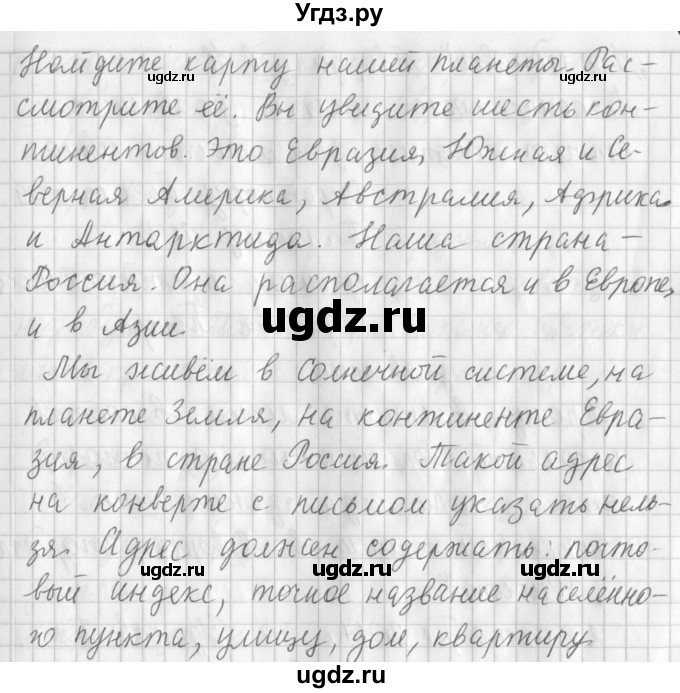 Угдз.ру
Найдите карту нашей планеты. Рас-
смотрите её. Вы увидите шесть кон-
тинентов. Это Евразия, Южная и Се-
верная Америка, Австралия, Африка
и Антарктида. Наша страна –
Россия. Она располагается и в Европе,
и в Азии.
Мы живём в Солнечной системе, на
планете Земля, на континенте Евра-
зия, в стране Россия. Такой адрес
на конверте с письмом указать нель-
зя. Адрес должен содержать: почто-
вый индекс, точное название населённо-
го пункта, улицу, дом, квартиру.
ugdz.ru
ugdz.ru
ugdz.ru
ugdz.ru
ugdz.ru
ugdz.ru
ugdz.ru
ugdz.ru
ugdz.ru
ugdz.ru
ugdz.ru